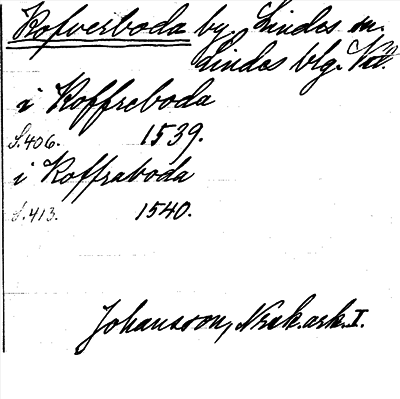 Kofverboda by, Lindes sn.
Lindes blg. Vstl.
i Koffreboda
S. 406. 1539.
i Koffraboda
S. 413. 1540.
Johansson, Norsk. ark. I.